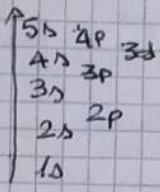 5s 4p 3d
4s 3p
3s
2s 2p
1s